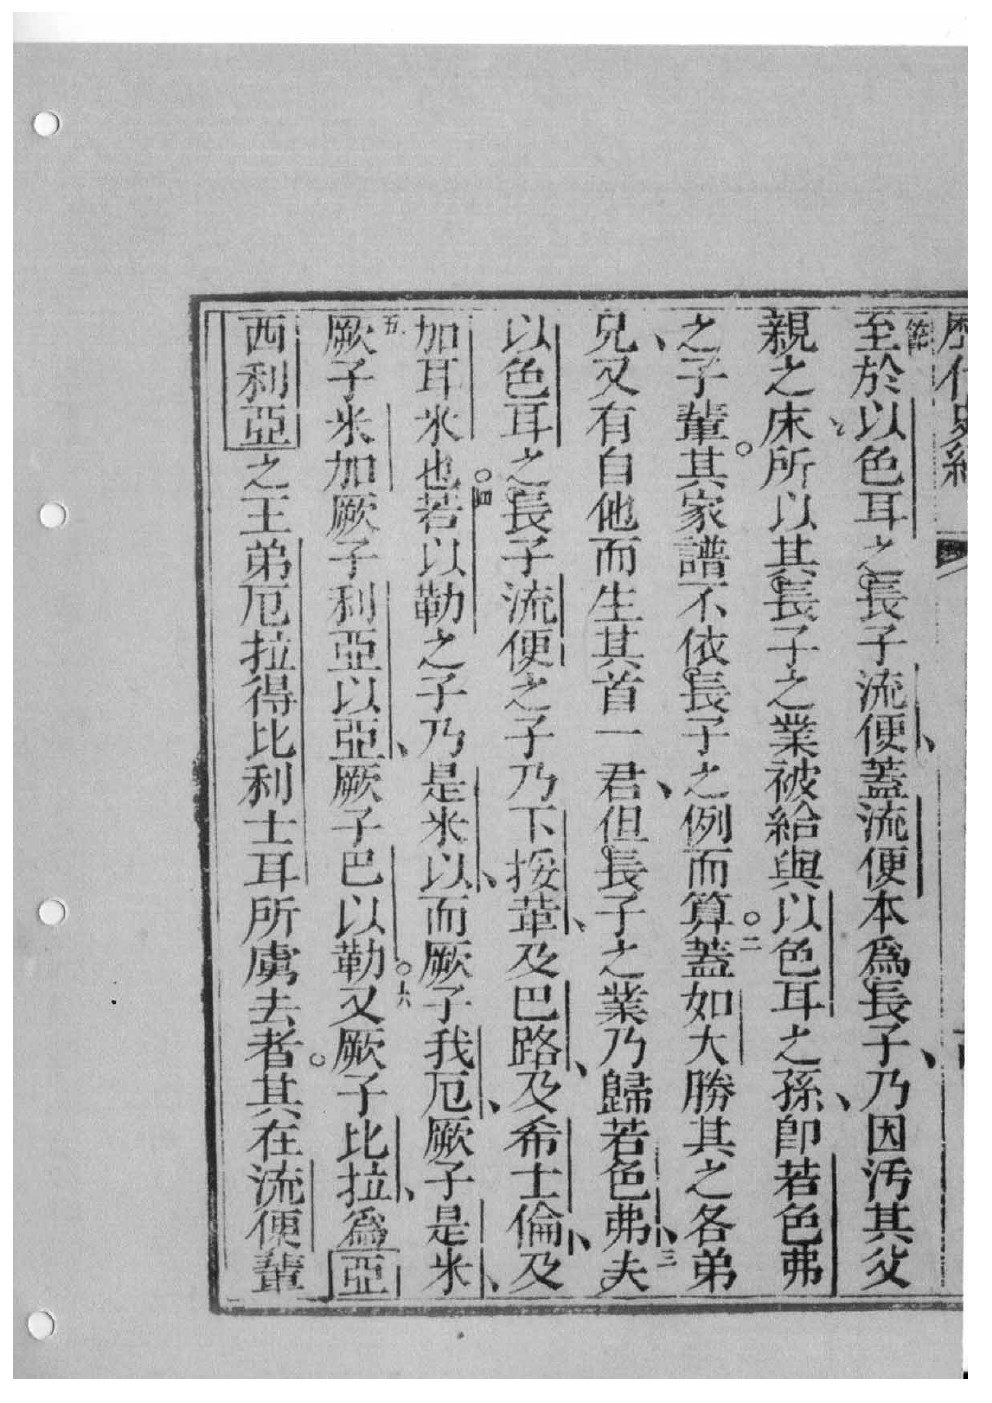 至於以色耳之長子流便蓋流便本爲長子乃因汚其父
親之床所以其長子之業被給與以色耳之孫卽若色弗
之子輩。其家譜不依長子之例而算。二蓋如大勝其之各弟
兄又有自他而生其首一君但長子之業乃歸若色弗三夫
以色耳之長子流便之子乃下挼葦及巴路及希士倫及
加耳米也。四若以勒之子乃是米以而厥子我厄厥子是米
五厥子米加厥子利亞以亞厥子巴以勒。六又厥子比拉爲亞
西利亞之王弟厄拉得比利士耳所虜去者。其在流便輩